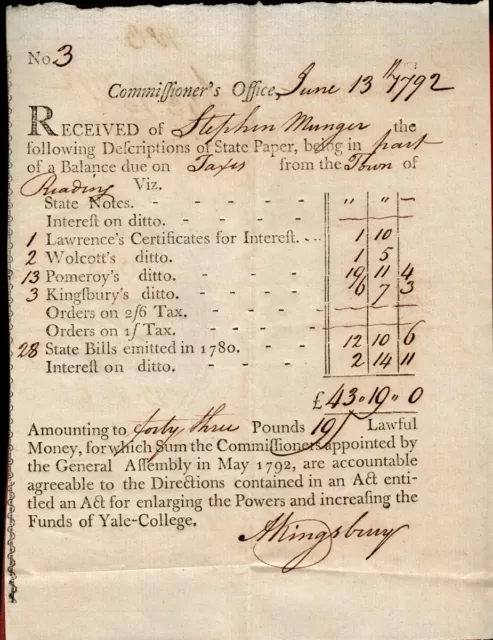 No. 3
Commiſſioner's Office, June 13th 1792
RECEIVED of Stephen Munger the
following Deſcriptions of State Paper, being in part
of a Balance due on Taxes from the Town of
Reading Viz.
State Notes. - - - - - " " -
Intereſt on ditto. - - - -
1 Lawrence's Certificates for Intereſt. - - - 1 10
2 Wolcott's ditto. - - - 1 5
13 Pomeroy's ditto. - - - 19 11 4
3 Kingſbury's ditto. - - - 6 7 3
Orders on 2ſ6 Tax. - - - -
Orders on 1ſ Tax. - - - -
28 State Bills emitted in 1780. - - - 12 10 6
Intereſt on ditto. - - - - 2 14 11
£ 43 " 19 " 0
Amounting to forty three Pounds 19/ Lawful
Money, for which Sum the Commiſſioners appointed by
the General Aſſembly in May 1792, are accountable
agreeable to the Directions contained in an Act enti-
tled an Act for enlarging the Powers and increaſing the
Funds of Yale-College.
AKingsbury